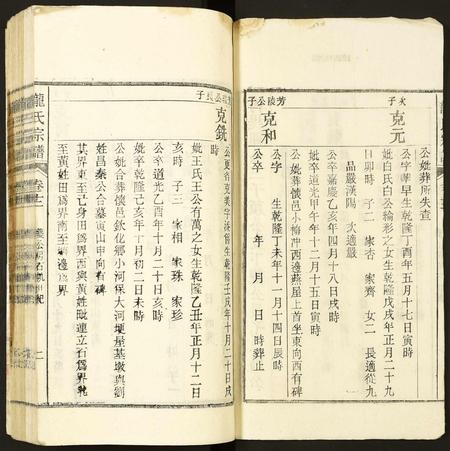 公妣葬所失查
次子
克元
公字華早生乾隆丁酉年五月十七日寅時
妣白氏白公輪彤之女生乾隆戊戌年正月二十九
日卯時 子二 家杏 家齊 女二 長適從九
品嚴漢陽 次適嚴
公卒嘉慶乙亥年四月十八日戌時
妣卒道光甲午年十二月十五日寅時
公妣葬懷邑小梅冲西邊燕屋上首坐東向西有碑
芳陵公子
克和
公字 生乾隆丁未年十一月十四日辰時
公卒 年 月 日 時葬止
公長子
克銑
時
妣王氏王公有萬之女生乾隆乙丑年正月十二日
亥時 子三 家相 家珠 家珍
公卒道光乙酉年十月二十日亥時
妣卒乾隆己亥年十月初二日未時
公妣合葬懷邑欽化鄉小河保大河埂屋基墩與劉
姓昌秦公合墓寅山申向有碑
其界東至己身田爲界西與黃姓毗連立石爲界北
至黃姓田爲界南至塘邊爲界
龍氏宗譜
卷之
二